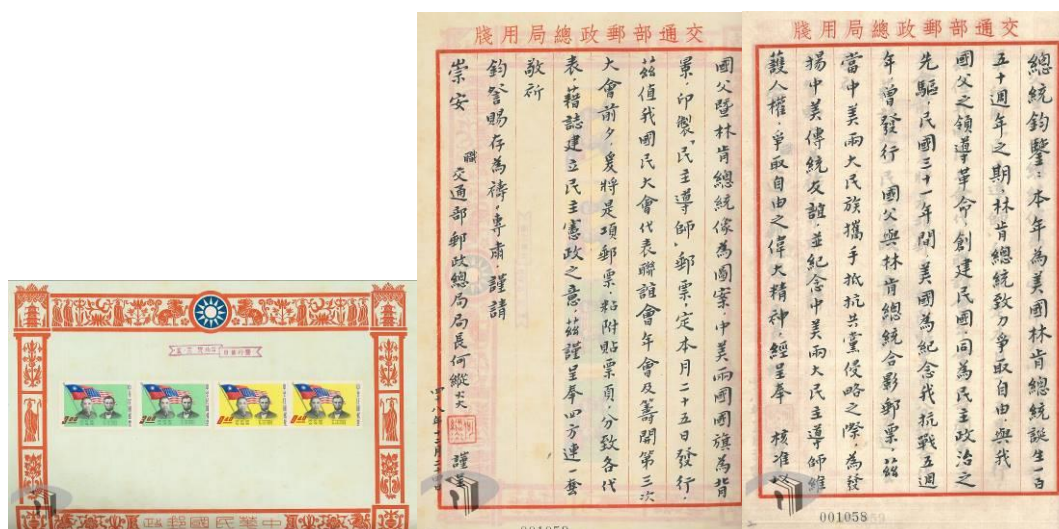 交通部郵政總局用牋
總統鈞鑒:本年為美國林肯總統誕生一百
五十週年之期,林肯總統致力爭取自由,與我
國父之領導革命,創建民國,同為民主政治之
先驅,民國三十一年間,美國為紀念我抗戰五週
年曾發行 國父與林肯總統合影郵票,茲
當中美兩大民族攜手抵抗共黨侵略之際,為發
揚中美傳統友誼,並紀念中美兩大民主導師維
護人權,爭取自由之偉大精神,經呈奉 核准以
001058
交通部郵政總局用牋
國父暨林肯總統像為圖案,中美兩國國旗為背
景,印製「民主導師」郵票,定本月二十五日發行,
茲值我國民大會代表聯誼會年會及籌開第三次
大會前夕,爰將是項郵票,粘附貼票頁,分致各代
表,藉誌建立民主憲政之意,茲謹呈奉四方連一套
敬祈
鈞詧賜存為禱,專肅,謹請
崇安
職 交通部郵政總局局長何縱炎 謹呈
四八年十二月二十四日
001059
中華民國郵政